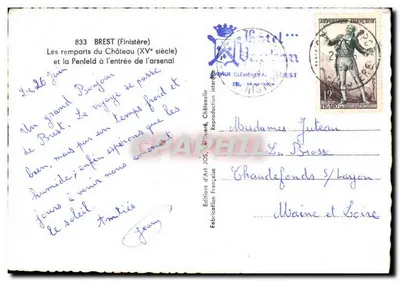 833 BREST (Finistère)
Les remparts du Château (XVe siècle)
et la Penfeld à l'entrée de l'arsenal
Le 26 Juin
Un grand Bonjour
de Brest. Le voyage se passe
bien, mais par un temps froid et
humide; enfin espérons que les
jours à venir nous amènent
le soleil.
Amitiés
Jean
Editions d'Art JOS, Châteaulin
Reproduction interdite
Fabrication Française
Hotel...
Mesdames Juteau
La Brosse
Chaudefonds s/Layon
Maine et Loire
CARTE-PHILA